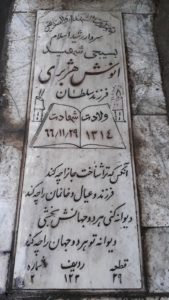 سردار رشید اسلام
بسیجی شهید
انوش هژبری
فرزند سلطان
ولادت شهادت
۱۳۱۴ ۶۶/۱۱/۲۹
آنکس که تو را شناخت جان را چه کند
فرزند و عیال و خانمان را چه کند
دیوانه کنی هر دو جهانش بخشی
دیوانه تو هر دو جهان را چه کند
قطعه ردیف شماره
۲۹ ۱۲۳ ۲